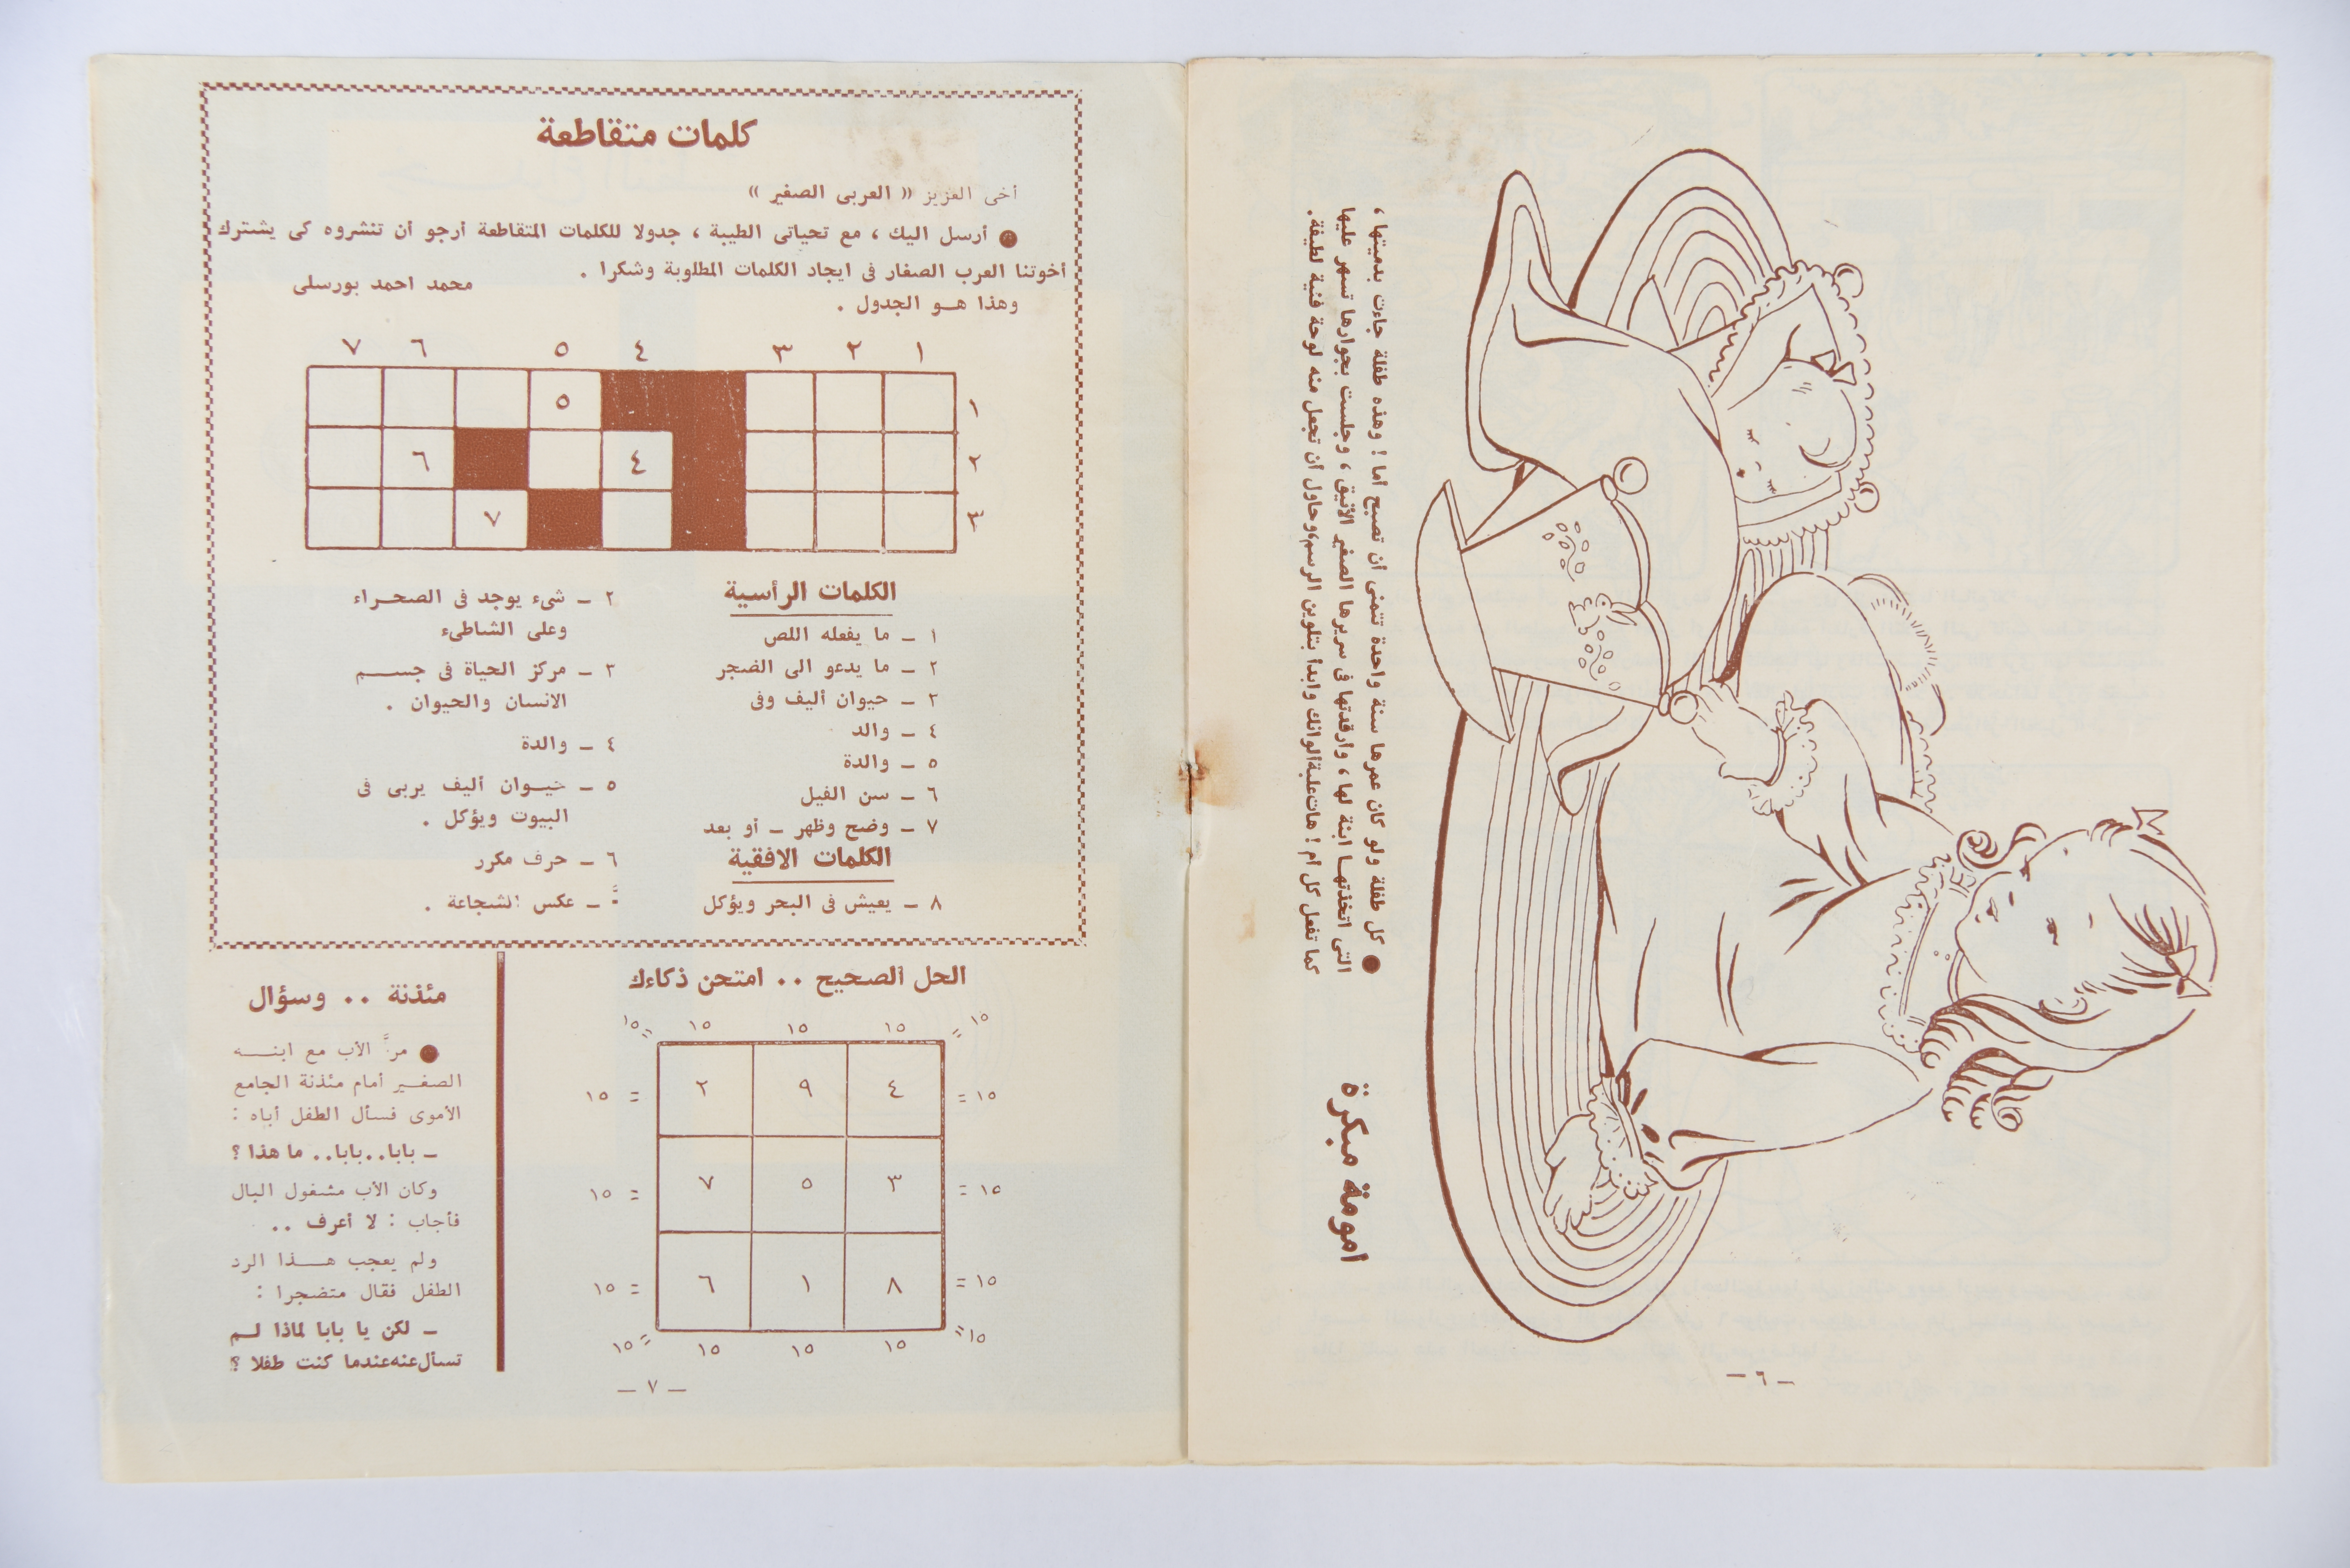 ● كل طفلة ولو كان عمرها سنة واحدة تتمنى أن تصبح أما ! وهذه طفلة جاءت بدميتها ،
التى اتخذتهــا ابنة لها ، وارقدتها فى سريرها الصغير الأنيق ، وجلست بجوارها تسهر عليها
كما تفعل كل أم ! هات علبة ألوانك وابدأ بتلوين الرسم، وحاول أن تجعل منه لوحة فنية لطيفة.
امومة مبكرة
– ٦ –
كلمات متقاطعة
أخى العزيز (( العربى الصغير ))
● أرسل اليك ، مع تحياتى الطيبة ، جدولا للكلمات المتقاطعة أرجو أن تنشروه كى يشترك
أخوتنا العرب الصغار فى ايجاد الكلمات المطلوبة وشكرا .
محمد احمد بورسلى
وهذا هــو الجدول .
١ ٢ ٣ ٤ ٥ ٦ ٧
١ ٥
٢ ٤ ٦
٣ ٧
الكلمات الرأسية
١ – ما يفعله اللص
٢ – ما يدعو الى الضجر
٣ – حيوان أليف وفى
٤ – والد
٥ – والدة
٦ – سن الفيل
٧ – وضح وظهر – أو بعد
الكلمات الافقية
٨ – يعيش فى البحر ويؤكل
٢ – شىء يوجد فى الصحــراء
وعلى الشاطىء
٣ – مركز الحياة فى جســـم
الانسان والحيوان .
٤ – والدة
٥ – حيــوان أليف يربى فى
البيوت ويؤكل .
٦ – حرف مكرر
– عكس الشجاعة .
الحل الصحيح .. امتحن ذكاءك
١٥= ١٥ ١٥ ١٥ =١٥
=١٥ ٤ ٩ ٢ = ١٥
=١٥ ٣ ٥ ٧ = ١٥
=١٥ ٨ ١ ٦ = ١٥
=١٥ ١٥ ١٥ ١٥ =١٥
مئذنة .. وسؤال
● مرَّ الأب مع ابنـــه
الصغــير أمام مئذنة الجامع
الأموى فسأل الطفل أباه :
– بابا..بابا.. ما هذا ؟
وكان الأب مشغول البال
فأجاب : لا أعرف ..
ولم يعجب هـــذا الرد
الطفل فقال متضجرا :
– لكن يا بابا لماذا لــم
تسأل عنه عندما كنت طفلا ؟
– ٧ –